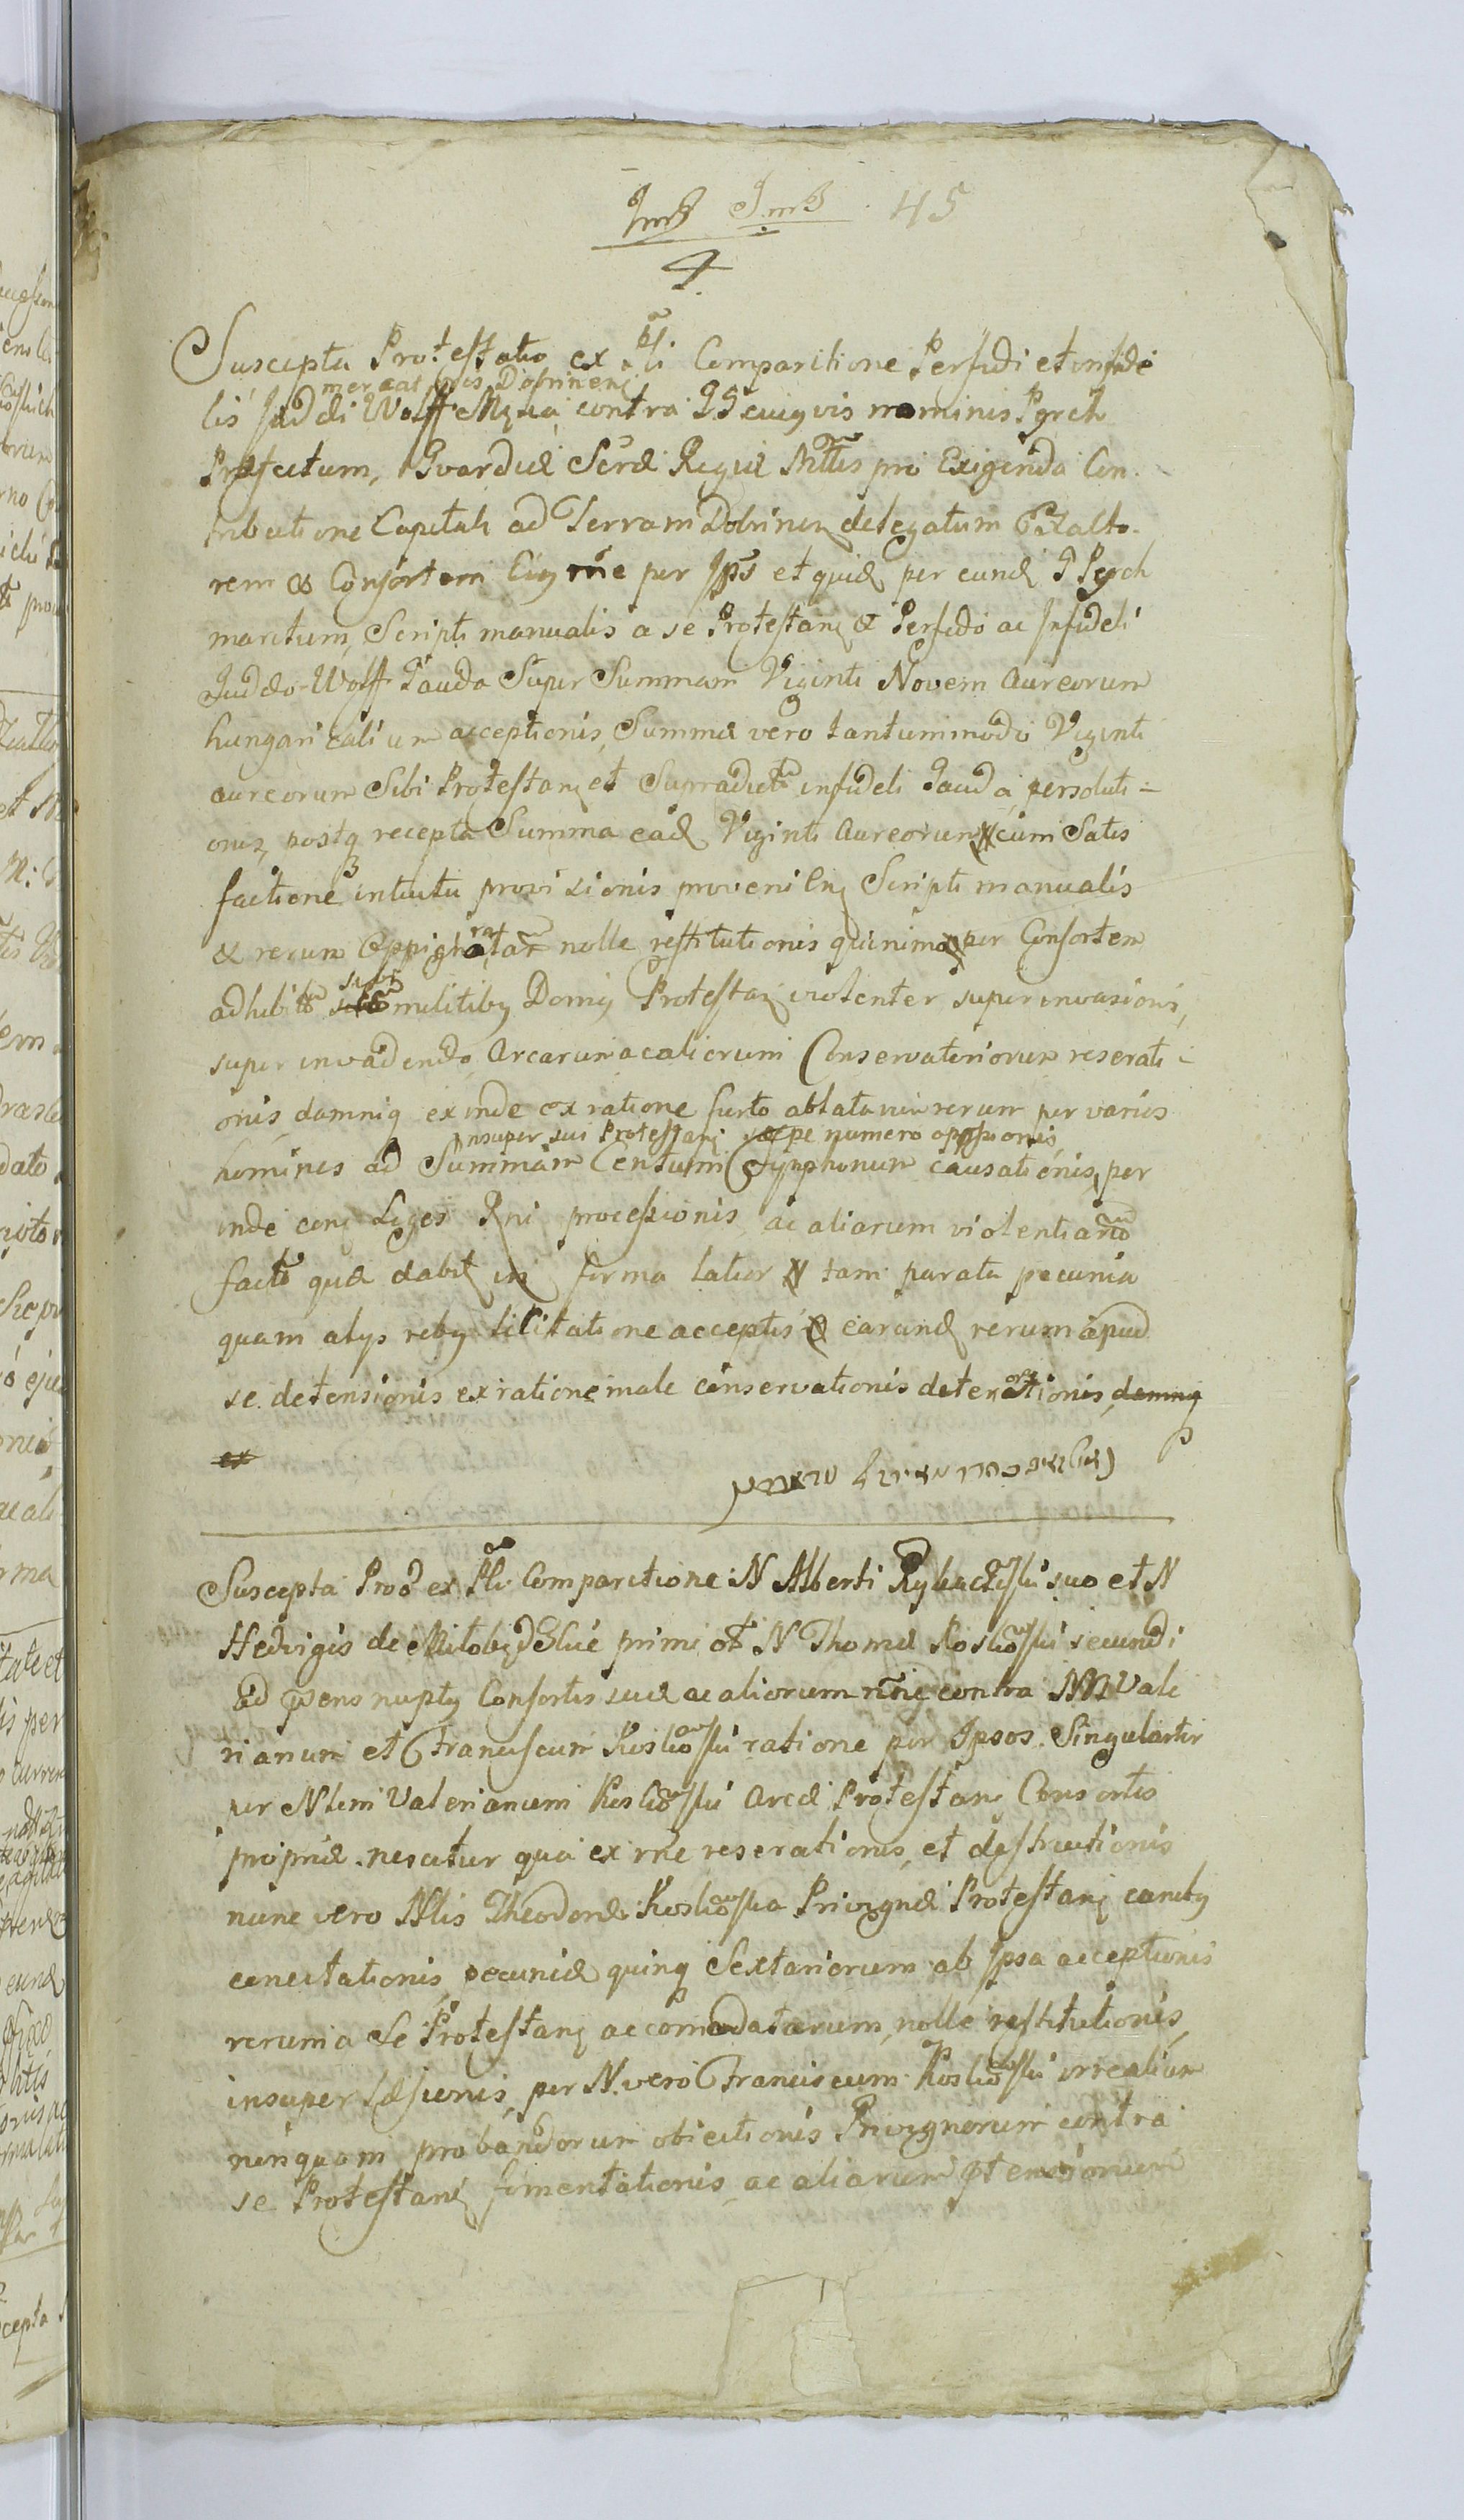 45
4
Suscepta Protestatio ex psli Comparitione Perfidi et infide
mercatoris Dobrinen
lis Judæi Wolff contra G cuiusvis nominis Pyrch
Præfectum, Gvardiæ Seræ Regiæ Mttis pro Exigenda Con
tributione Capitali ad Terram Dobrinen delegatum Exacto
rem & Consortem Eius rne per Ipsos et quid per eund G Pyrch
maritum, Scripti manualis a se Protestan & Perfido ac Infideli
Judæo Wolff Jauda Super Summam Viginti Novem Aureorum
hungaricalium acceptionis, Summæ vero tantummodo Viginti
aureorum Sibi Protestan et Supradicto infideli Jauda persoluti=
onis, postq recepta Summa ead Viginti Aureorum cum Satis
factione intuitu provisionis provenien Scripti manualis
& rerum Oppignoratar nolle restitutionis quinimo per Consortem
sibi
adhibitis militibus Domus Protestan violenter superinvasionis,
super invadendo Arcarum ac aliorum Conservatoriorum reserati
onis, damniq exinde ex ratione furto ablatarum rerum per varios
insuper sui Protestan sæpe numero oppssionis
homines ad Summam Centum Tymphonum causationis, per
inde con Leges Rni processionis, ac aliarum violentiarum
facto quæ dabit in forma latior tam parata pecunia
quam alys rebus licitatione acceptis earund rerum apud
se detensionis ex ratione male conservationis deteriorationis, damniq
ex
Suscepta Prot ex Psli Comparitione N Alberti suo et N
Hedvigis de primi et N Thomæ Kosków ski secundi
ad præsens nuptus Consortis suæ ac aliorum contra NN Vale
rianum et Franciscum Koskowski ratione per Ipsos Singulariter
per Nlem Valerianum Koskowski Arcæ Protestan Consortis
propriæ nescitur qua ex rne reserationis, et destructionis
nunc vero Nlis Theodoræ Koskowska Privignæ Protestan
concitationis, pecuniæ quinq Sextariorum ab Ipsa acceptionis
rerum a Se Protestan accomodatarum, nolle restitutionis,
insuper Læsionis, per N. vero Franciscum Koskowski irrealium
nunquam probandorum obiectionis Privignorum contra
se Protestan fomentationis, ac aliarum ptensionum